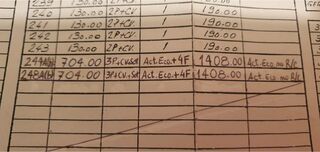 239 130.00 2P+CV / 190.00
240 130.00 2P+CV / 190.00
241 130.00 2P+CV / 190.00
242 130.00 2P+CV / 190.00
243 130.00 2P+CV / 190.00
704.00 3P+CV+Sot Act.Eco.+4F 1408.00 Act.Eco.no R/C
704.00 3P+CV+Sot Act.Eco.+4F 1408.00 Act.Eco.no R/C